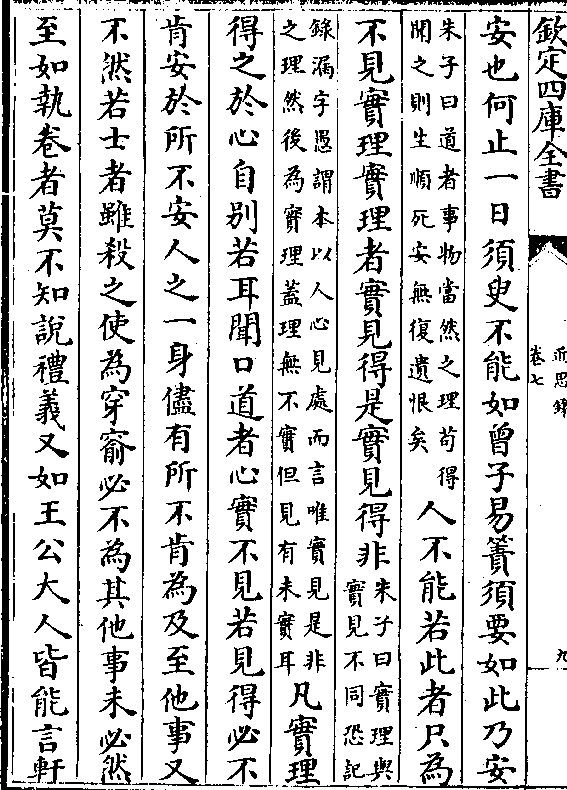 欽定四庫全書
近思錄
卷七
九
安也何止一日須臾不能如曾子易簀須要如此乃安
朱子曰道者事物當然之理苟得
聞之則生順死安無復遺恨矣
人不能若此者只為
不見實理實理者實見得是實見得非
朱子曰實理與
實見不同恐記
錄漏字愚謂本以人心見處而言唯實見是非
之理然後為實理蓋理無不實但見有未實耳
凡實理
得之於心自别若耳聞口道者心實不見若見得必不
肯安於所不安人之一身儘有所不肯為及至他事又
不然若士者雖殺之使為穿窬必不為其他事未必然
至如執卷者莫不知說禮義又如王公大人皆能言軒